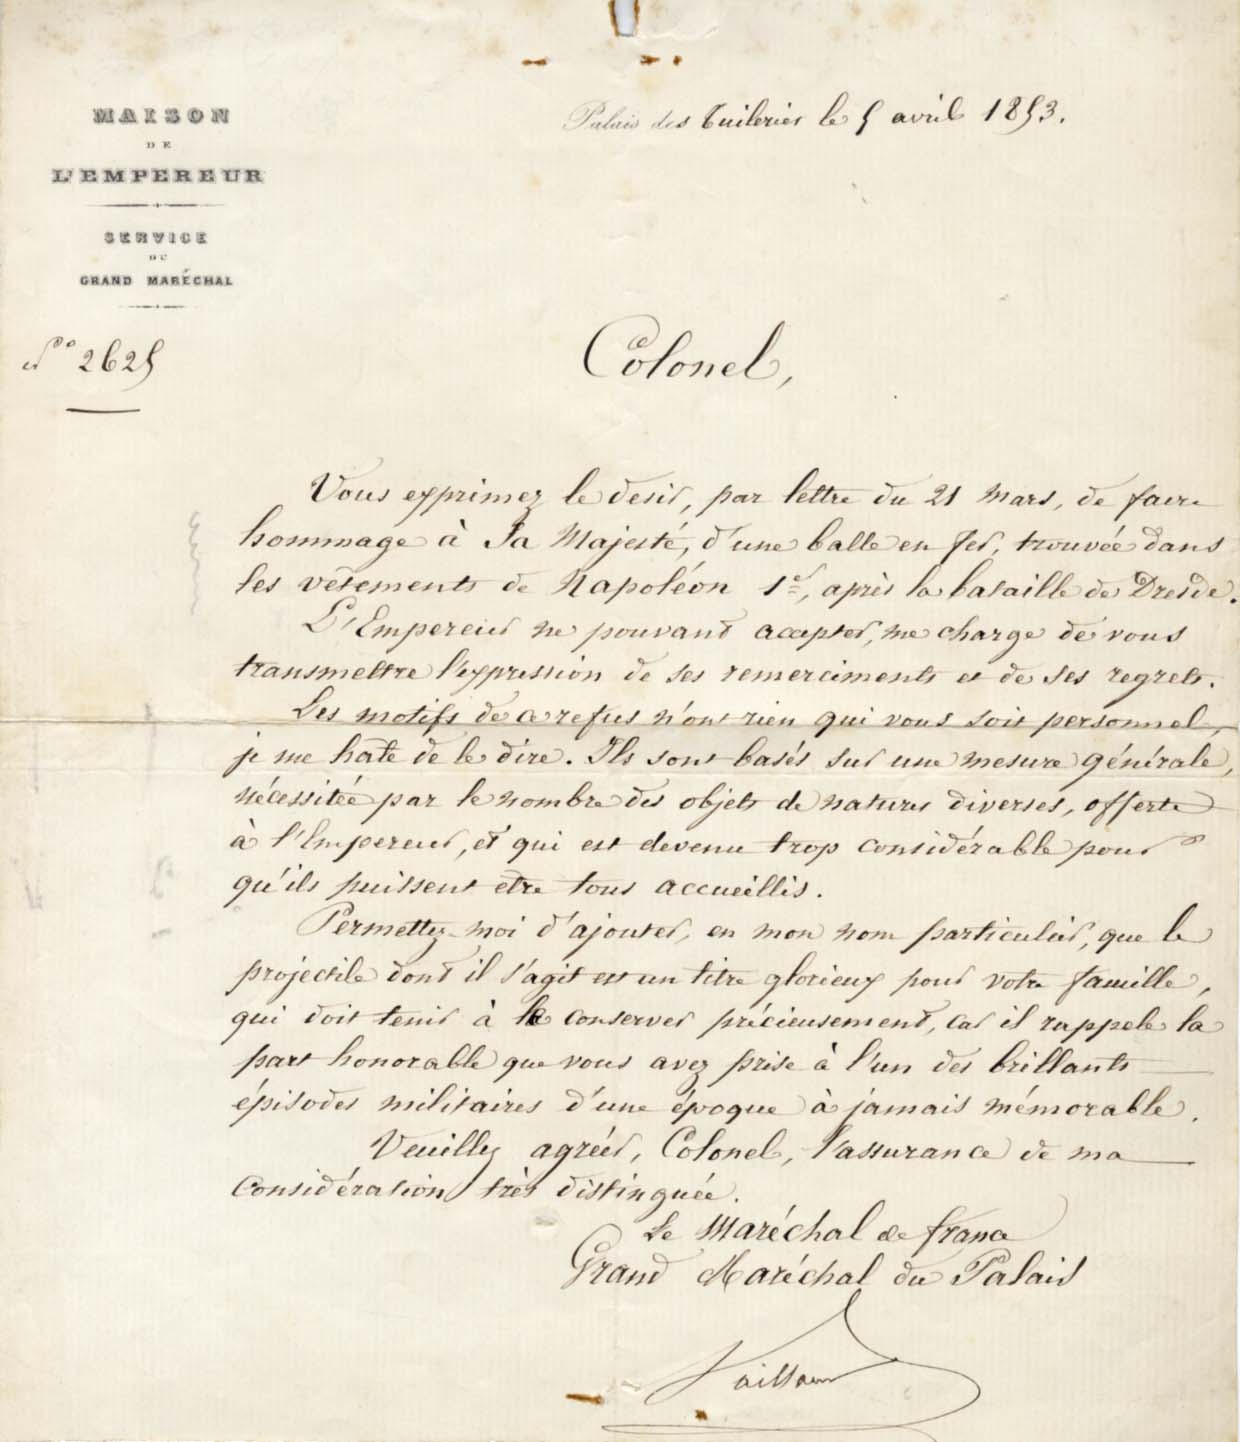 MAISON
DE
L'EMPEREUR
SERVICE
DU
GRAND MARÉCHAL
N° 2625
Palais des Tuileries le 5 avril 1853.
Colonel,
Vous exprimez le desir, par lettre du 21 mars, de faire
hommage à Sa Majesté, d'une balle en fer, trouvée dans
les vêtements de Napoléon 1er, après la bataille de Dresde.
L'Empereur ne pouvant accepter, me charge de vous
transmettre l'expression de ses remerciments et de ses regrets.
Les motifs de ce refus n'ont rien qui vous soit personnel,
je me hâte de le dire. Ils sont basés sur une mesure générale,
nécessitée par le nombre des objets de natures diverses, offerts
à l'Empereur, et qui est devenu trop considérable pour
qu'ils puissent être tous accueillis.
Permettez-moi d'ajouter, en mon nom particulier, que le
projectile dont il s'agit est un titre glorieux pour votre famille,
qui doit tenir à le conserver précieusement, car il rappele la
part honorable que vous avez prise à l'un des brillants
épisodes militaires d'une époque à jamais mémorable.
Veuillez agréer, Colonel, l'assurance de ma
considération très distinguée.
Le Maréchal de france
Grand Maréchal du Palais
Vaillant